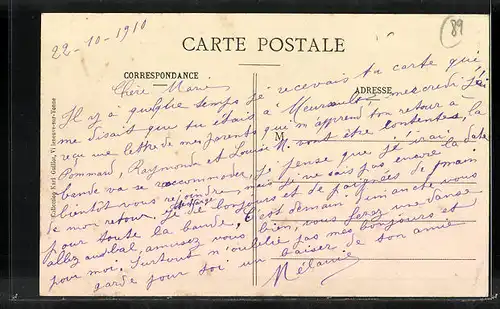 22-10-1910
89
CARTE POSTALE
CORRESPONDANCE
ADRESSE
M
Collection Karl Guillot, Villeneuve-sur-Yonne
Chère Marie
Il y a quelque temps je recevais ta carte qui
me disait que tu étais à Meursault, mercredi j'ai
reçu une lettre de mes parents qui m'apprend ton retour à
Pommard, Raymonde et Louise M. sont être contentes, la
bande va se raccommoder, je pense que j'irai
bientôt vous rejoindre, mais je ne sais pas encore la date
de mon retour. Je de bonjours et de poignées de main
pour toute la bande, C'est demain dimanche vous
allez au bal, amusez vous bien, vous ferez une danse
pour moi. Surtout n'oublie pas mes bonjours et
garde pour toi un baiser de ton amie
Mélanie